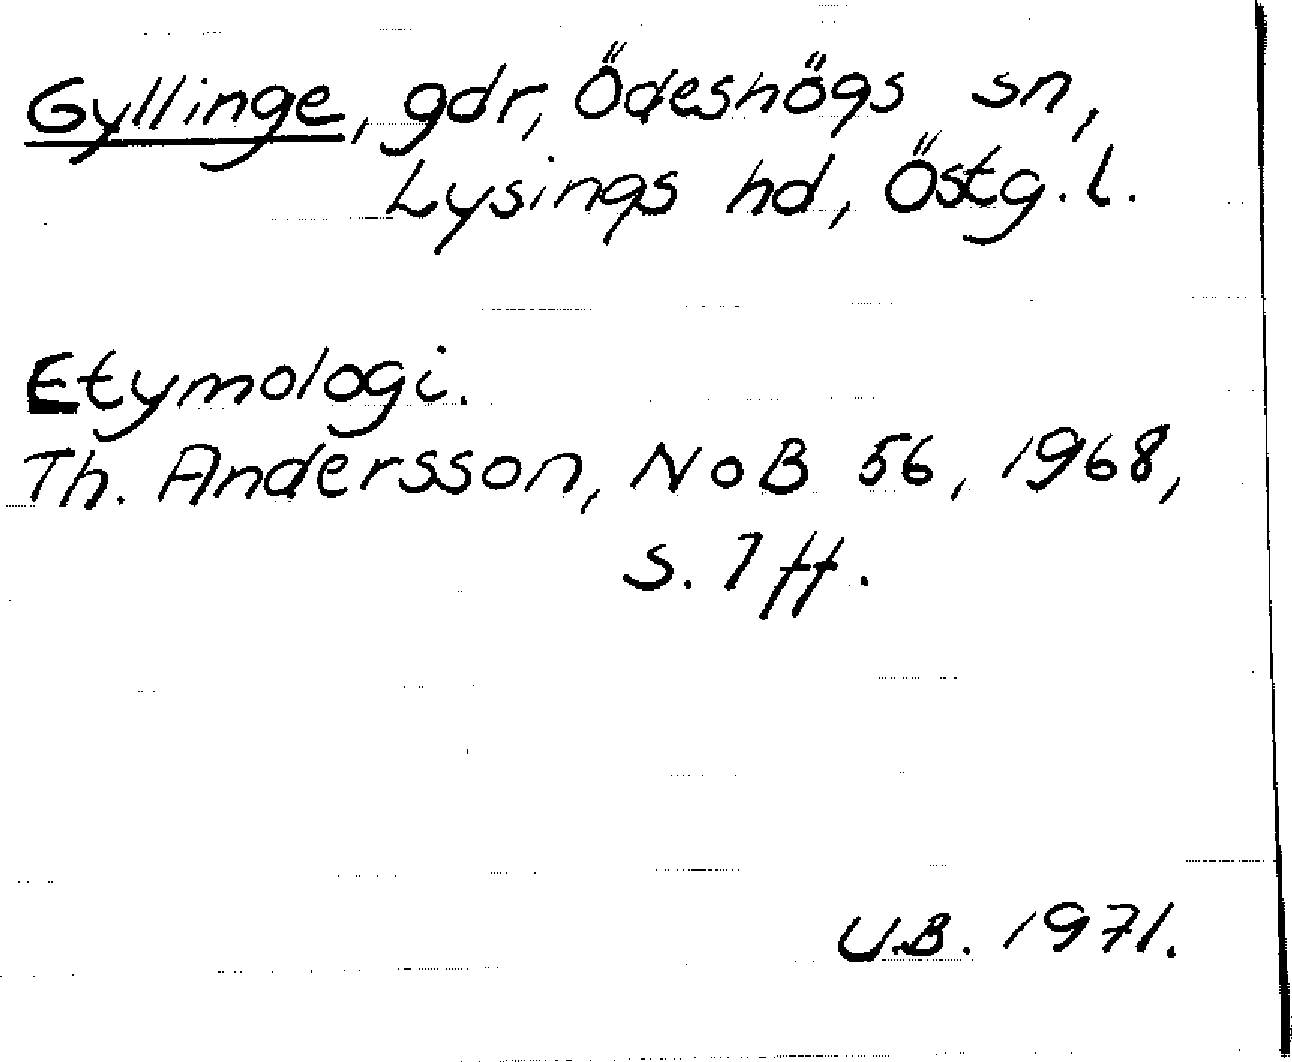 Gyllinge, gdr, Ödeshögs sn,
Lysings hd, Östg.l.
Etymologi.
Th. Andersson, NoB 56, 1968,
s. 7 ff.
U.B. 1971.